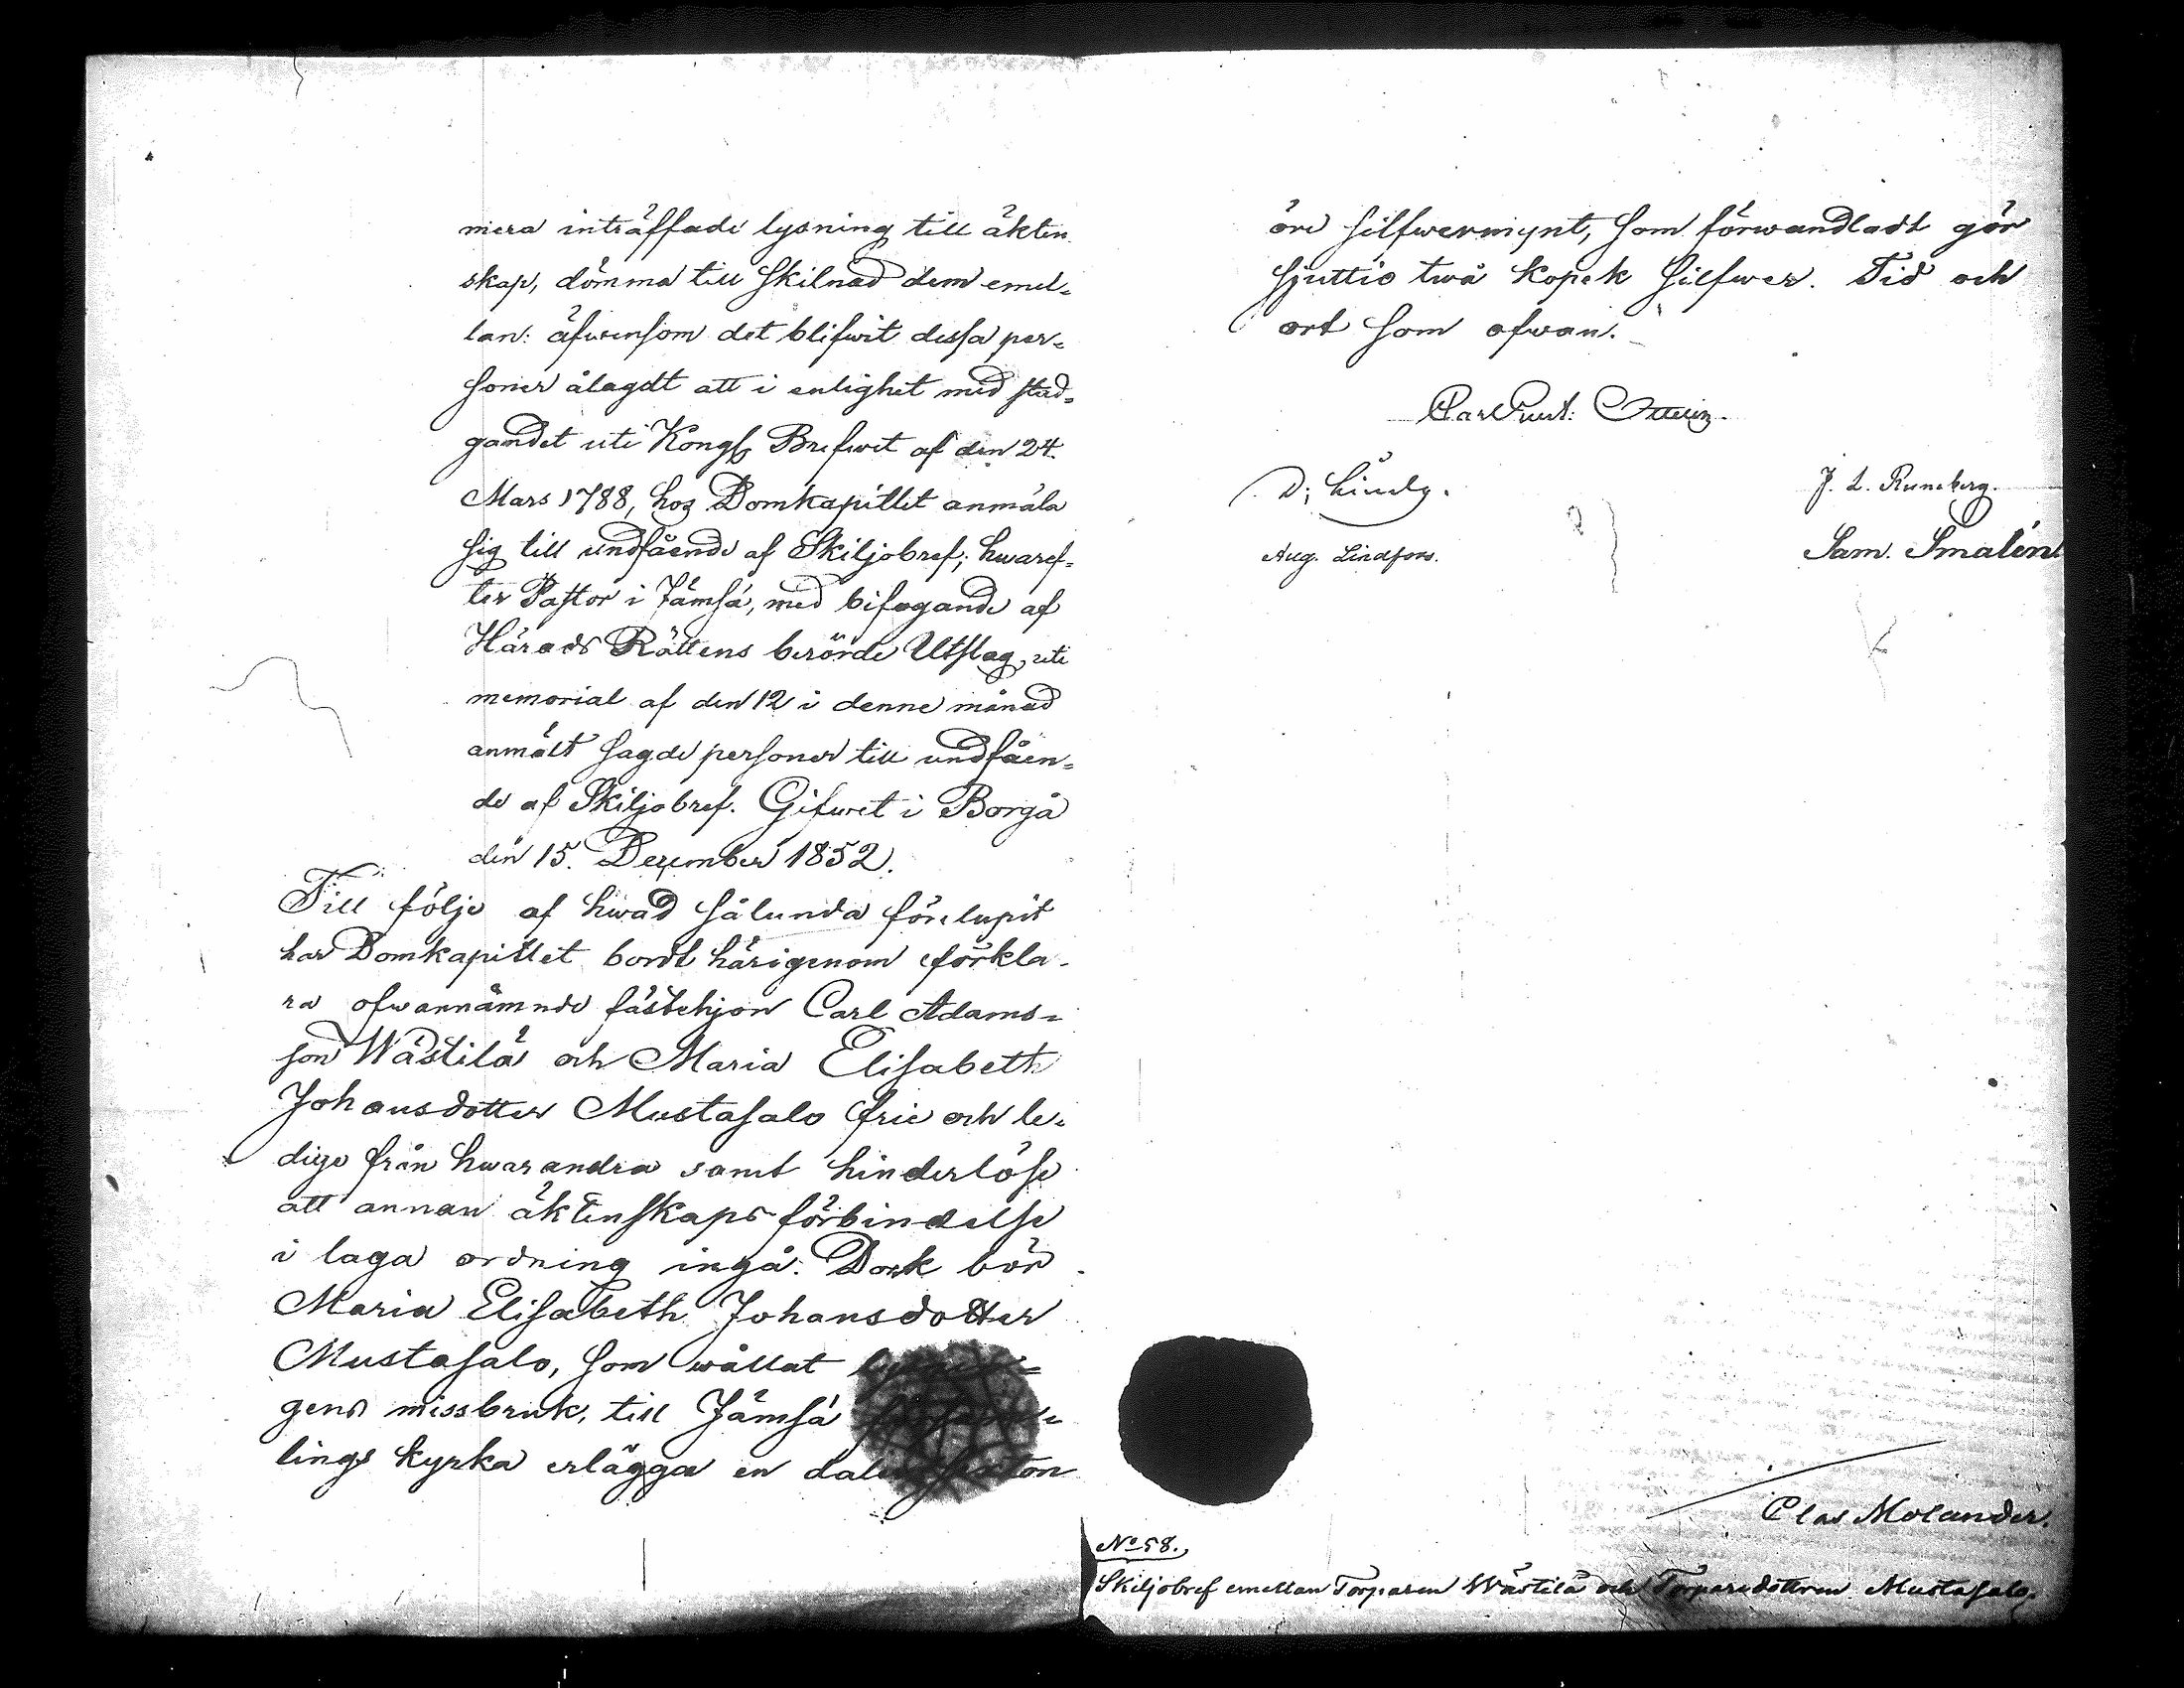 mera inträffade lysning till äkten
skap, dömma till skilnad dem emel-
lan: äfwensom det blifwit dessa per-
soner ålagdt att i enlighet med stad-
gandet uti Kongl Brefwet af den 24.
Mars 1788, hos Domkapitlet anmäla
sig till undfående af Skiljobref; hwaref-
ter Pastor i Jämsä, med bifogande af
Härads Rättens berörde Utslag, uti
memorial af den 12 i denne månad
anmält sagde personer till undfåen-
de af Skiljobref. Gifwet i Borgå
den 15. December 1852.
Till följe af hwad sålunda förelupit
har Domkapitlet bordt härigenom förkla-
ra ofwannämnde fästehjon Carl Adams-
son Wästilä och Maria Elisabeth
Johansdotter Mustasalo frie och le-
dige från hwarandra samt hinderlöse
att annan äktenskaps förbindelse
i laga ordning ingå. Dock bör
Maria Elisabeth Johansdotter
Mustasalo, som wållat
gens missbruk, till Jämsä
lings kyrka erlägga en daler
öre silfwermynt, som förwandladt gör
sjuttio twå kopek silfwer. Tid och
ort som ofwan.
J. L. Runeberg.
Aug. Lindfors.
Sam. Smalén
Clas Molander.
No 58.
Skiljobref emellan Torparen Wästilä och Torparedottren Mustasalo.